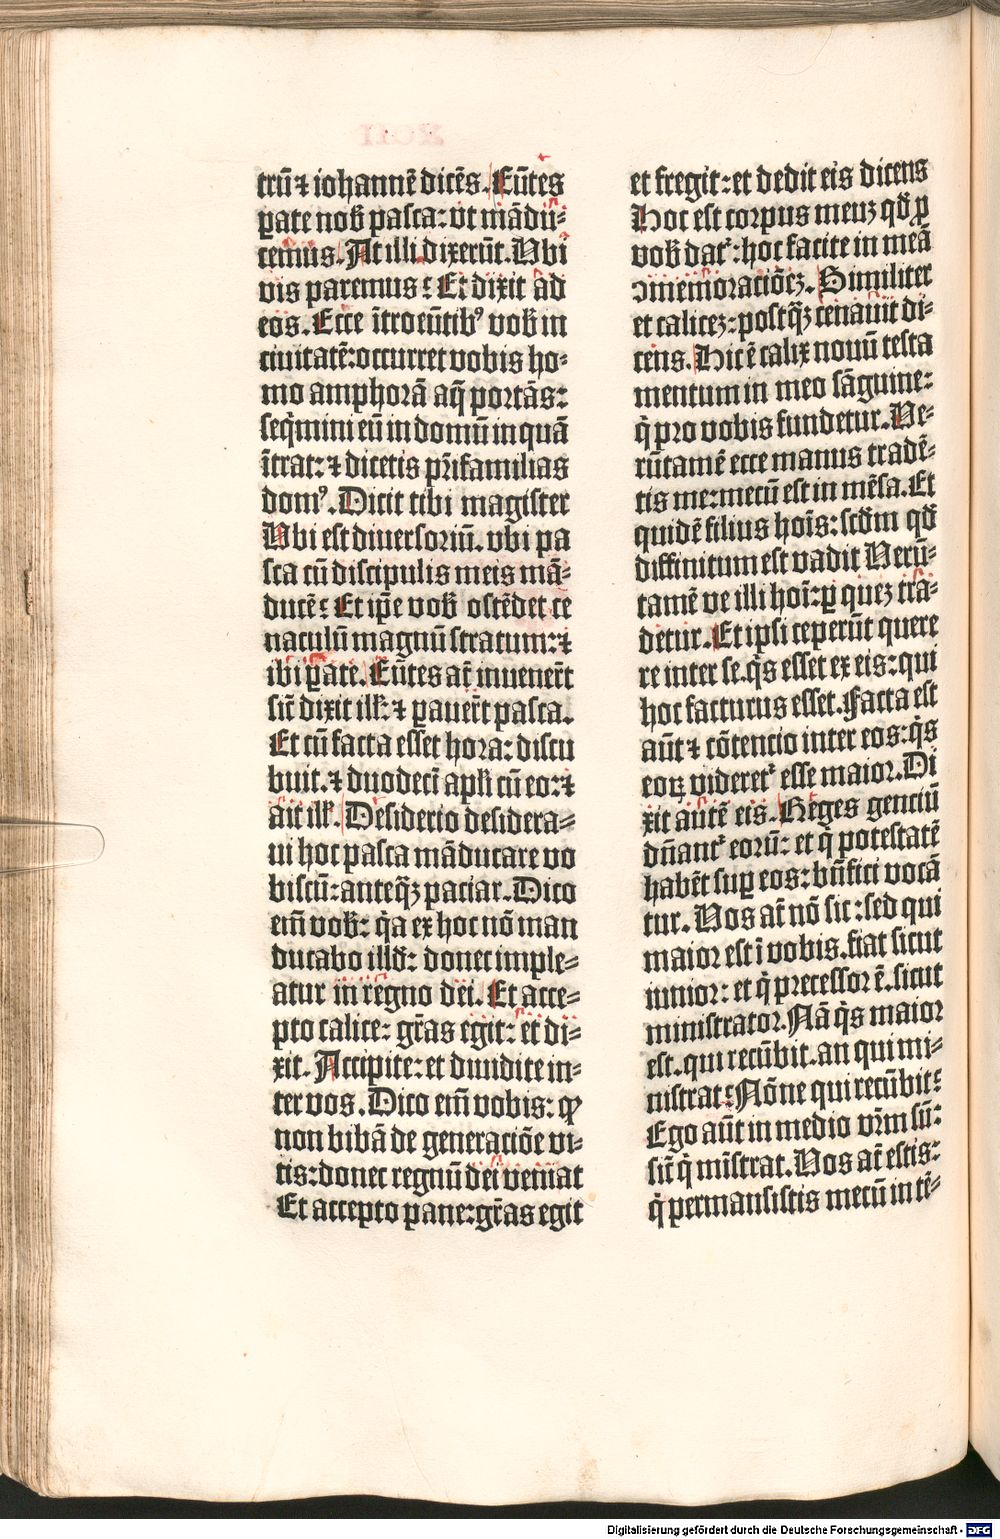 trū ⁊ iohannē dicēs. Eūtes
ꝑate nob̄ pasca: vt mādu⸗
cemus. At illi dixerūt. Ubi
vis paremus: Et dixit ad
eos. Ecce ītroeūtibꝰ vob̄ in
ciuitatē: occurret vobis ho⸗
mo amphorā aq̄ portās:
seq̄mini eū in domū in quā
ītrat: ⁊ dicetis pr̄ifamilias
domꝰ. Dicit tibi magister
Ubi est diuersoriū. vbi pa
sca cū discipulis meis mā⸗
ducē: Et ip̄e vob̄ ostēdet ce
naculū magnū stratum: ⁊
ibi ꝑate. Eūtes at̄ inuener̄t
sic̄ dixit ill̄: ⁊ ꝑauer̄t pasca.
Et cū facta esset hora: discu
buit. ⁊ duodecī apl̄i cū eo: ⁊
ait ill̄. Desiderio desidera⸗
ui hoc pasca māducare vo
biscū: anteqꝫ paciar. Dico
eim̄ vob̄: q̄a ex hoc nō man
ducabo illd̄: donec imple⸗
atur in regno dei. Et acce⸗
pto calice: gr̄as egit: et di⸗
xit. Accipite: et diuidite in⸗
ter vos. Dico eim̄ vobis: ꝙ
non bibā de generaciōe vi⸗
tis: donec regnū dei veniat
Et accepto pane: gr̄as egit
et fregit: et dedit eis dicens
Hoc est corpus meuꝫ qd̄ ꝓ
vob̄ dat᷑: hoc facite in meā
ɔmemoraciōeꝫ. Similiter
et caliceꝫ: postqꝫ cenauit di⸗
cens. Hic ē calix nouū testa
mentum in meo sāguine:
q̄ pro vobis fundetur. Ve⸗
rūtamē ecce manus tradē⸗
tis me: mecū est in mēsa. Et
quidē filius hoīs: scd̄m qd̄
diffinitum est vadit Verū⸗
tamē ve illi hoī: ꝑ queꝫ tra⸗
detur. Et ipsi ceperūt quere
re inter se. q̄s esset ex eis: qui
hoc facturus esset. Facta est
aūt ⁊ cōtencio inter eos: q̄s
eoꝝ videret᷑ esse maior. Di
xit autē eis. Reges genciū
dn̄ant᷑ eorū: et q̄ potestatē
habēt suꝑ eos: bn̄fici vocā
tur. Vos at̄ nō sic: sed qui
maior est ī vobis. fiat sicut
iunior: et q̄ precessor ē. sicut
ministrator. Nā q̄s maior
est. qui recūbit. an qui mi⸗
nistrat: Nōne qui recūbit:
Ego aūt in medio vr̄m sū:
sic̄ q̄ mīstrat. Vos at̄ estis:
q̄ permansistis mecū in tē⸗
Digitalisierung gefördert durch die Deutsche Forschungsgemeinschaft - DFG